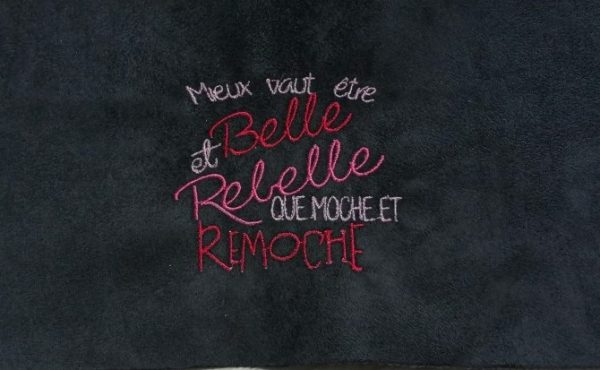 Mieux vaut être
Belle
et
Rebelle
QUE MOCHE ET
REMOCHE